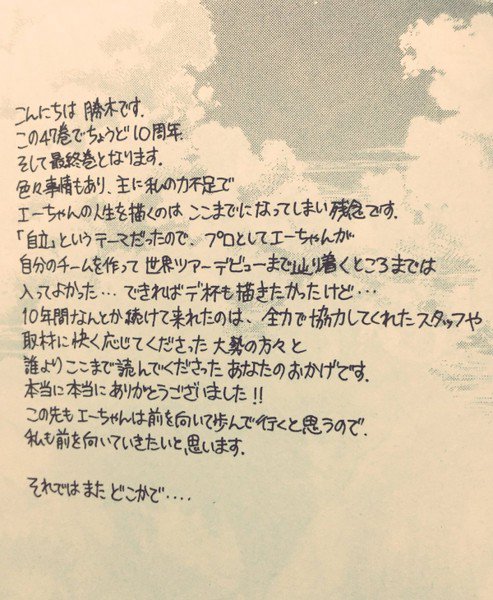 こんにちは 勝木です.
この47巻でちょうど10周年.
そして最終巻となります.
色々事情もあり、主に私の力不足で
エーちゃんの人生を描くのは ここまでになってしまい残念です.
「自立」というテーマだったので、プロとしてエーちゃんが
自分のチームを作って 世界ツアーデビューまで辿り着くところまでは
入ってよかった… できればデ杯も描きたかったけど…
10年間なんとか続けて来れたのは、全力で協力してくれたスタッフや
取材に快く応じてくださった 大勢の方々と
誰よりここまで読んでくださった あなたのおかげです.
本当に本当にありがとうございました!!
この先もエーちゃんは前を向いて歩んで行くと思うので.
私も前を向いていきたいと思います.
それではまた どこかで....